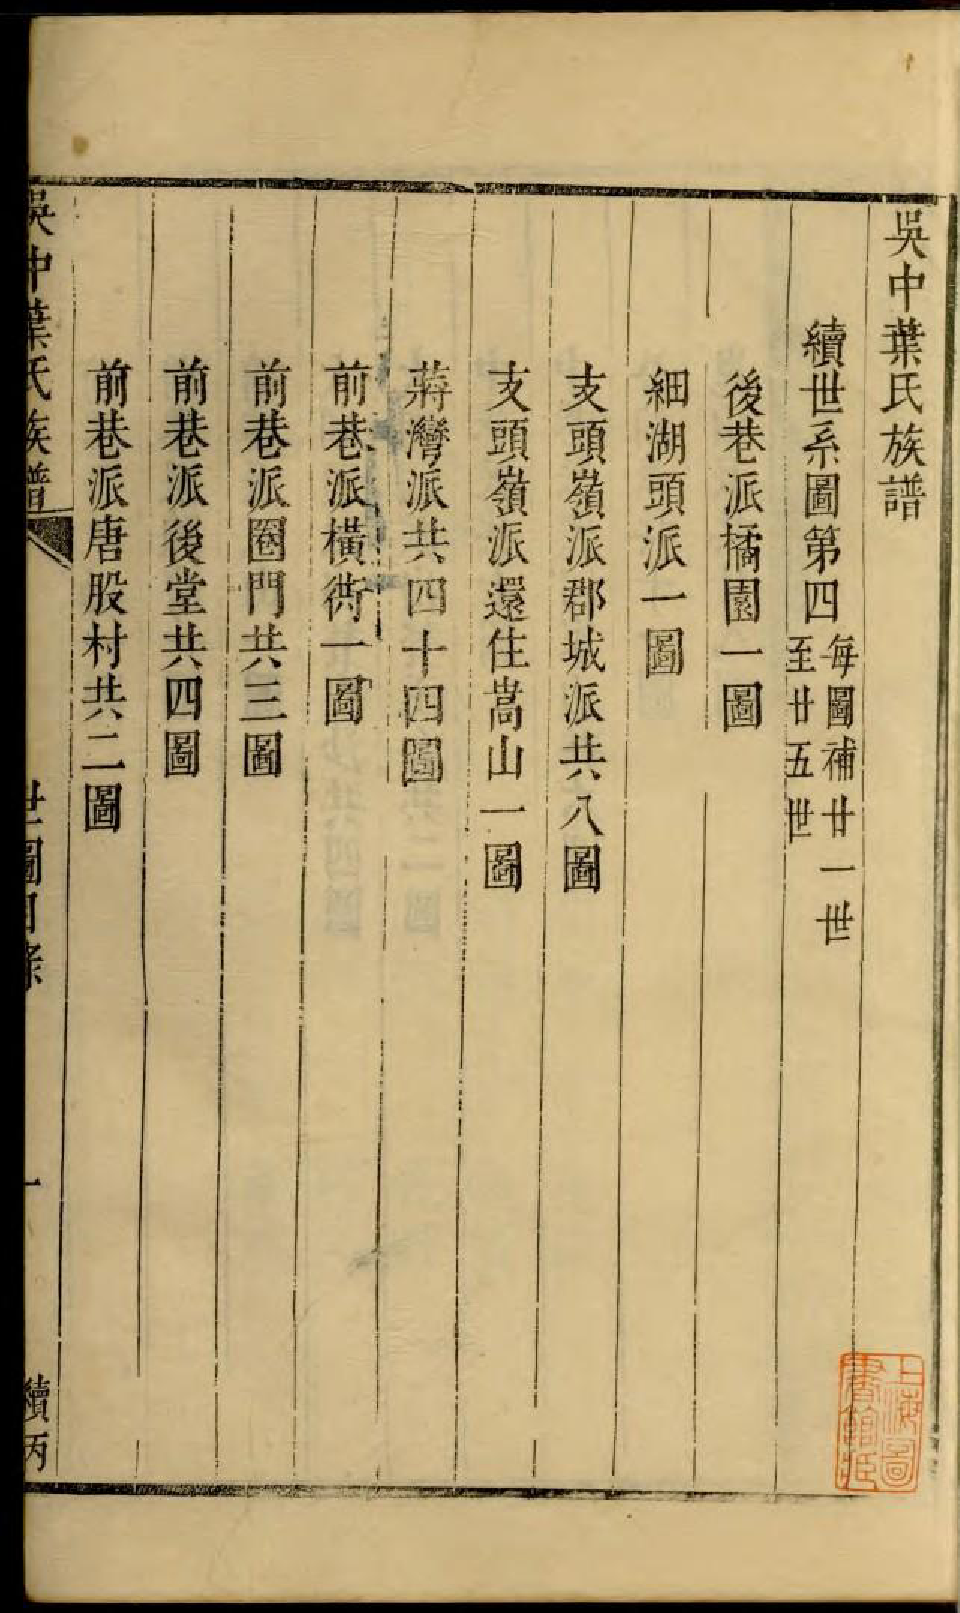 吳中葉氏族譜
續世系圖第四
每圖補廿一世
至廿五世
後巷派橘園一圖
細湖頭派一圖
支頭嶺派郡城派共八圖
支頭嶺派還住嵩山一圖
蔣灣派共四十四圖
前巷派橫衖一圖
前巷派圈門共三圖
前巷派後堂共四圖
前巷派唐股村共二圖
吳中葉氏族譜
世圖目條
一
續丙
上海圖
書館藏